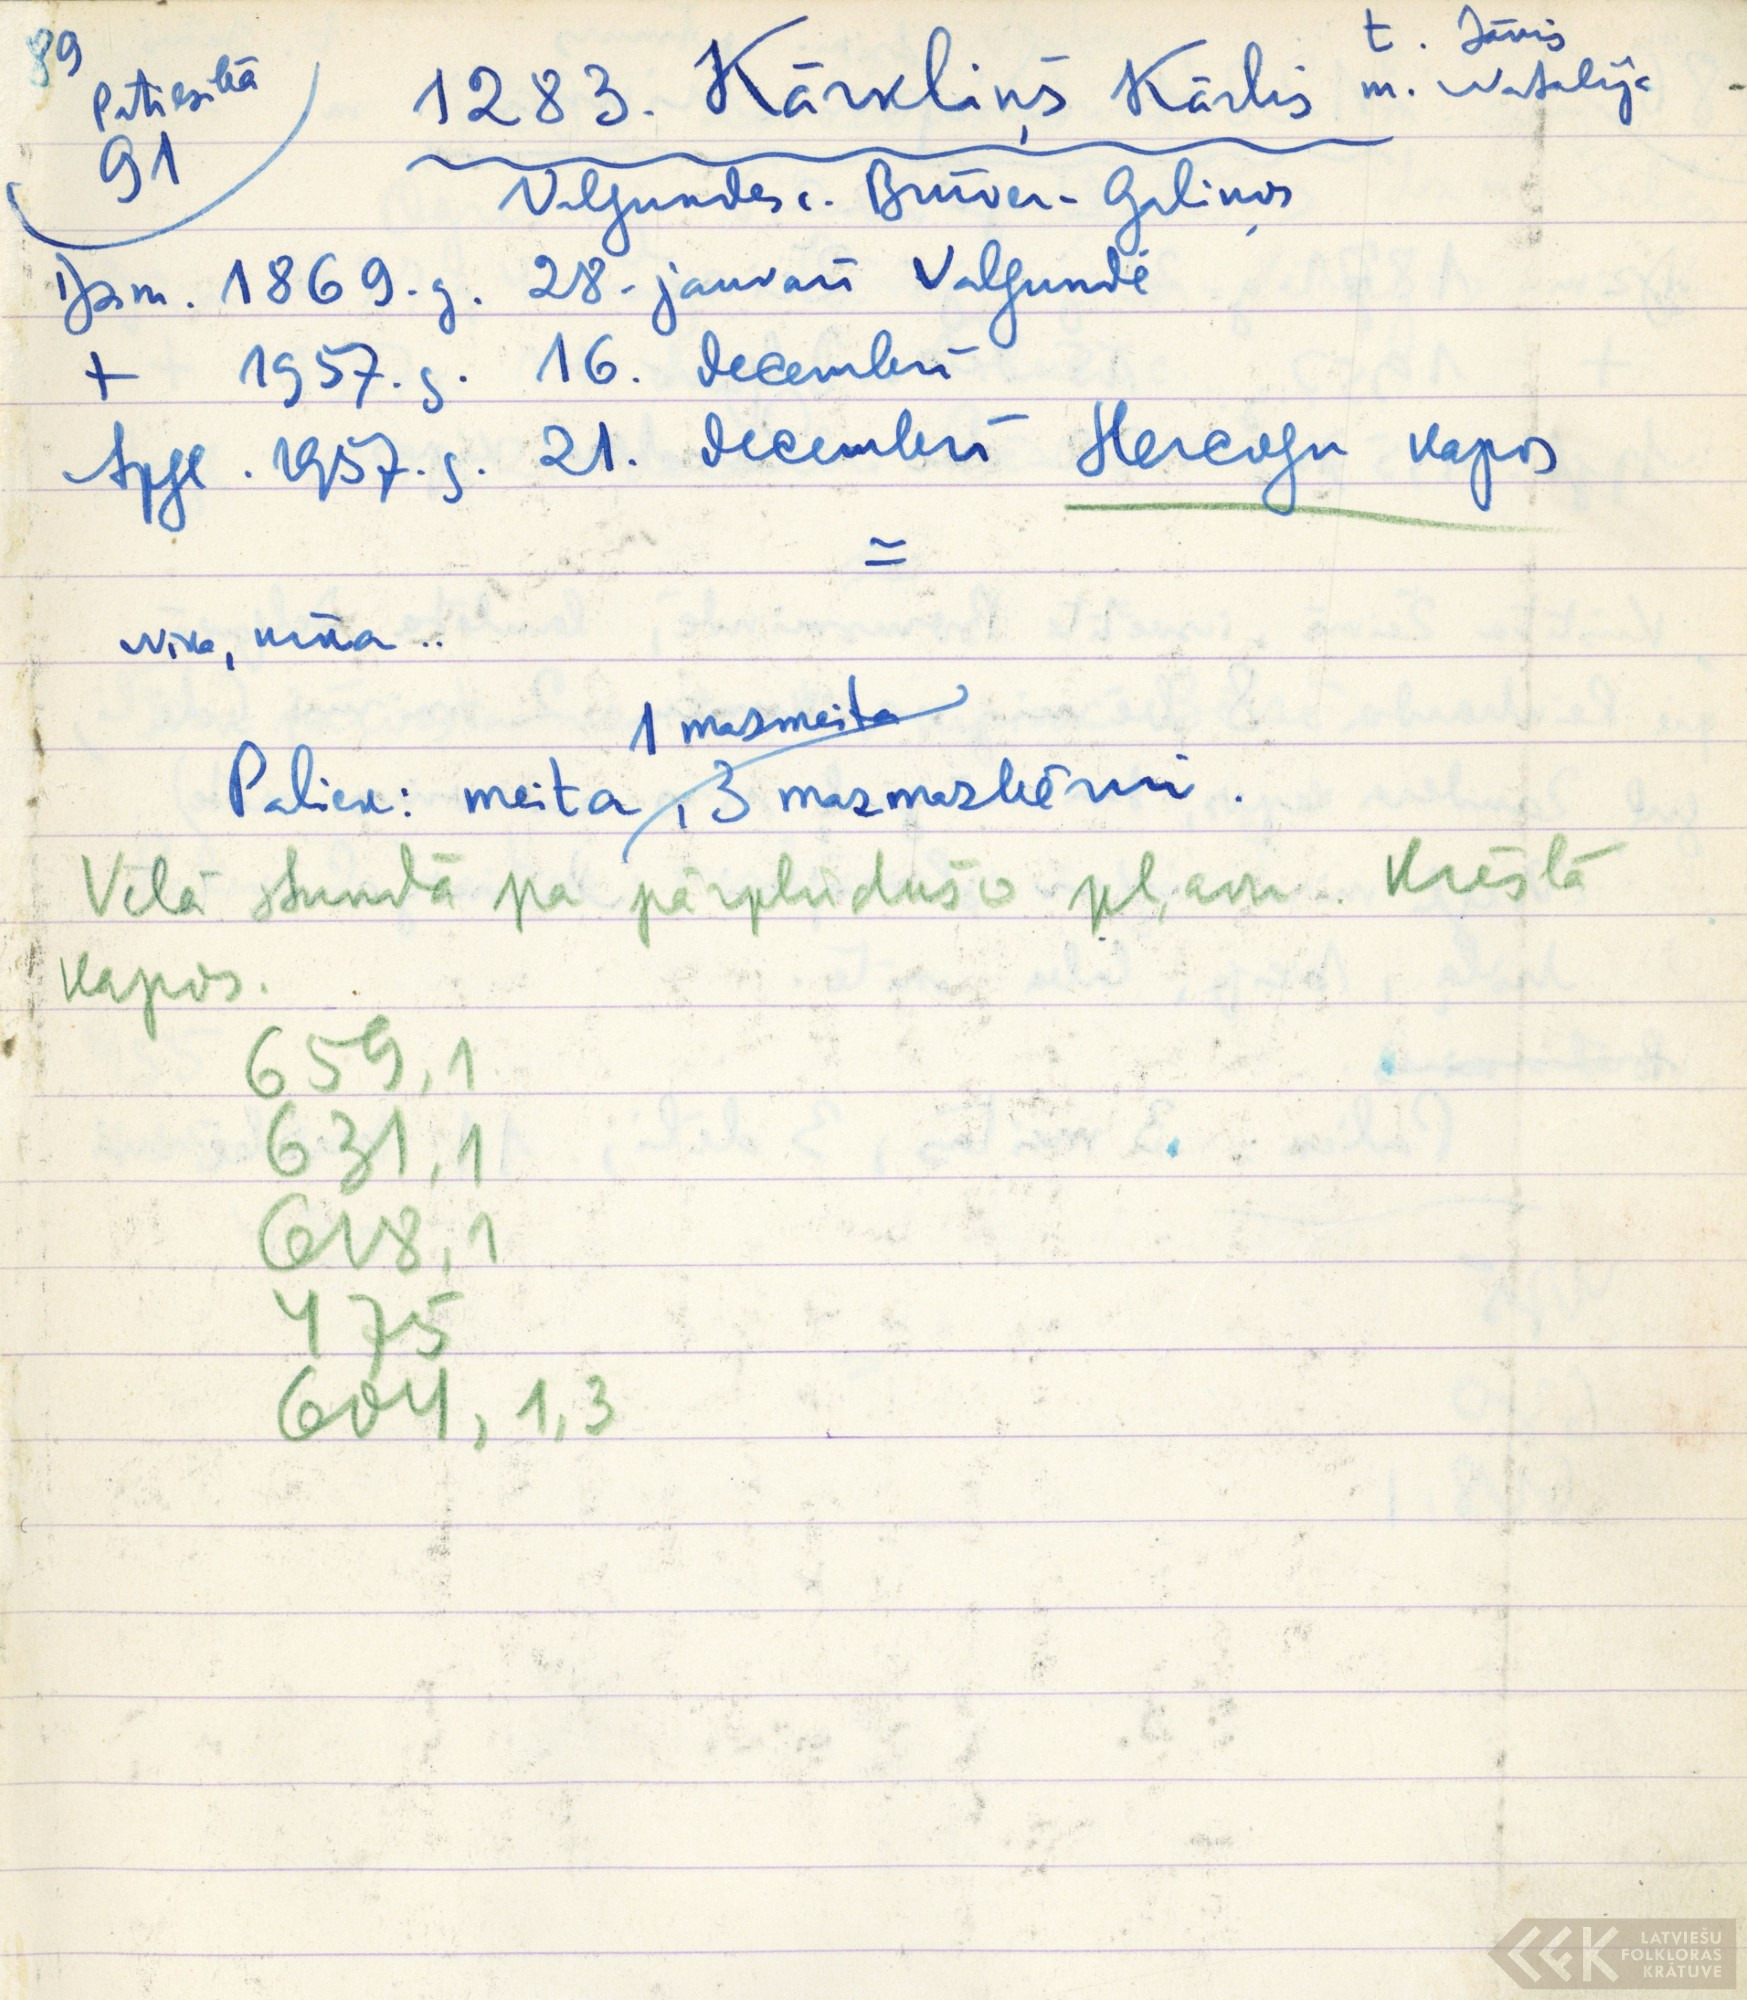 89
Patiesībā
91
1283. Kārkliņš Kārlis
t. Jānis
m. Natālija
Valgundes c. Brūver-Galiņos
Dzim. 1869.g. 28.janvarī Valgundē
+ 1957.g. 16. decembrī
Apgl. 1957.g. 21. decembrī Hercogu kapos
=
1 mazmeita
Paliek: meita, 3 mazmazbērni.
Vēlā stundā pa pārplūdušo pļavu. Krēslā
kapos.
659,1
631,1
618,1
475
604, 1,3
LATVIEŠU
FOLKLORAS
KRĀTUVE